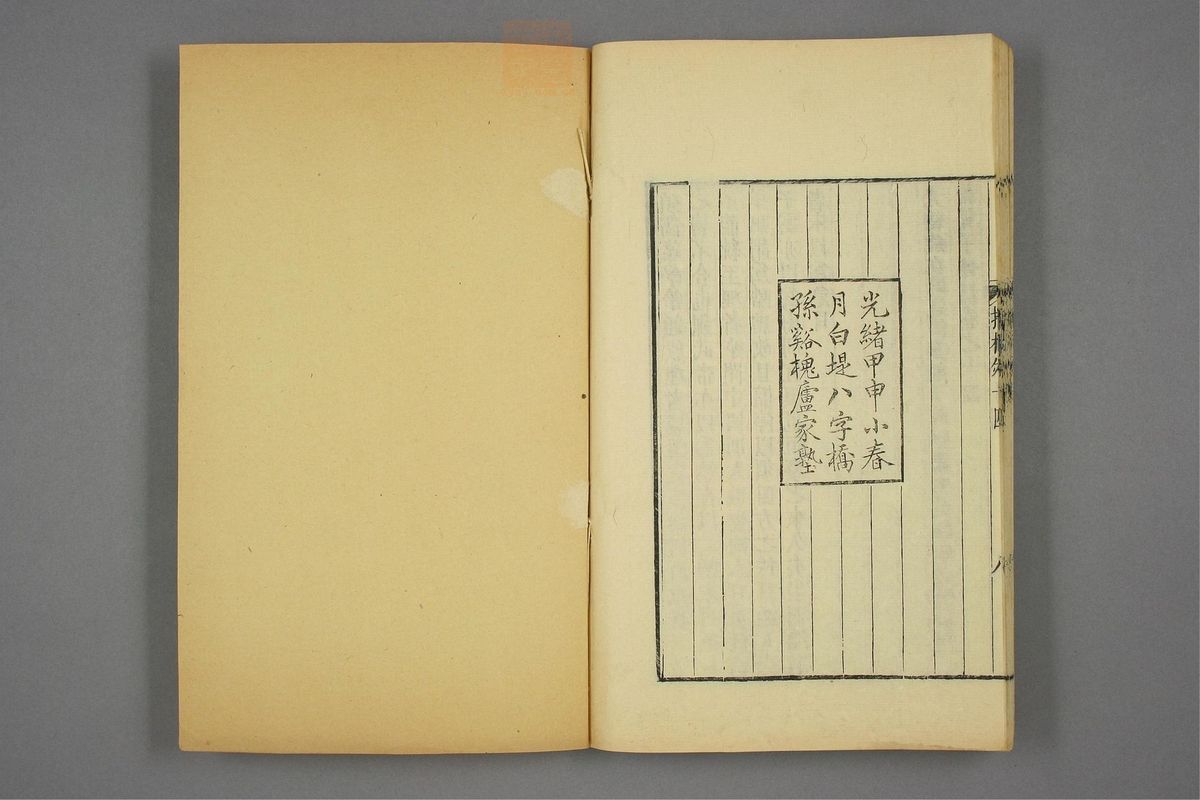 光緒甲申小春
月白堤八字橋
孫谿槐廬家塾
十四
八